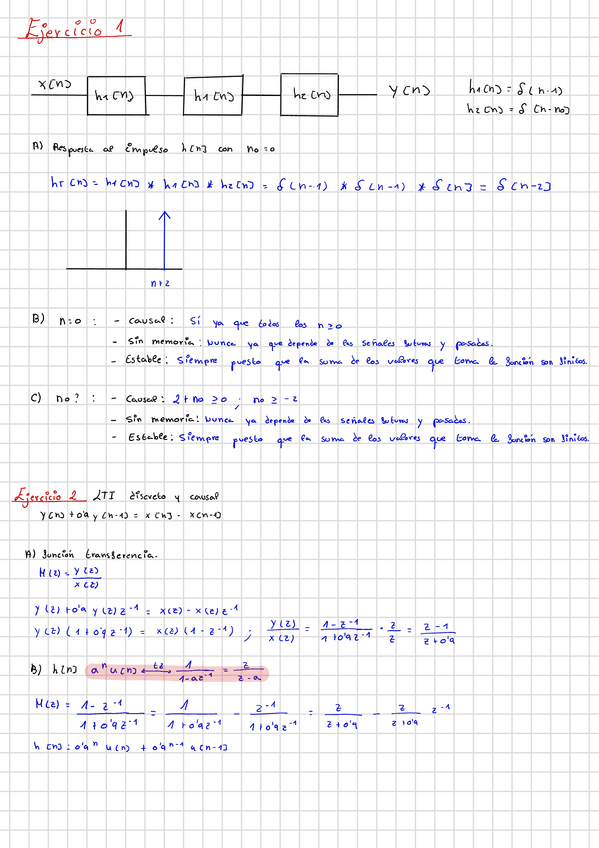 Ejercicio 1
x[n] h1[n] h1[n] h2[n] y[n] h1[n] = δ[n-1]
h2[n] = δ[n-no]
A) Respuesta al impulso h[n] con no = 0
hT[n] = h1[n] * h1[n] * h2[n] = δ[n-1] * δ[n-1] * δ[n] = δ[n-2]
n+2
B) n=0 : - Causal: Sí ya que todos los n≥0
- Sin memoria: Nunca ya que depende de las señales futuras y pasadas.
- Estable: Siempre puesto que la suma de los valores que toma la función son finitos.
C) no? : - Causal: 2+no ≥ 0 ; no ≥ -2
- Sin memoria: Nunca ya depende de las señales futuras y pasadas.
- Estable: Siempre puesto que la suma de los valores que toma la función son finitos.
Ejercicio 2 LTI discreto y causal
y[n] + 0'9 y[n-1] = x[n] - x[n-1]
A) función transferencia.
H(z) = Y(z) / X(z)
Y(z) + 0'9 Y(z) z^-1 = X(z) - X(z) z^-1
Y(z) (1 + 0'9 z^-1) = X(z) (1 - z^-1) ; Y(z) / X(z) = (1 - z^-1) / (1 + 0'9 z^-1) · z / z = (z - 1) / (z + 0'9)
B) h[n] a^n u[n] ⟷ tz 1 / (1 - a z^-1) = z / (z - a)
H(z) = (1 - z^-1) / (1 + 0'9 z^-1) = 1 / (1 + 0'9 z^-1) - z^-1 / (1 + 0'9 z^-1) = z / (z + 0'9) - z / (z + 0'9) z^-1
h[n] : 0'9^n u[n] + 0'9^n-1 u[n-1]